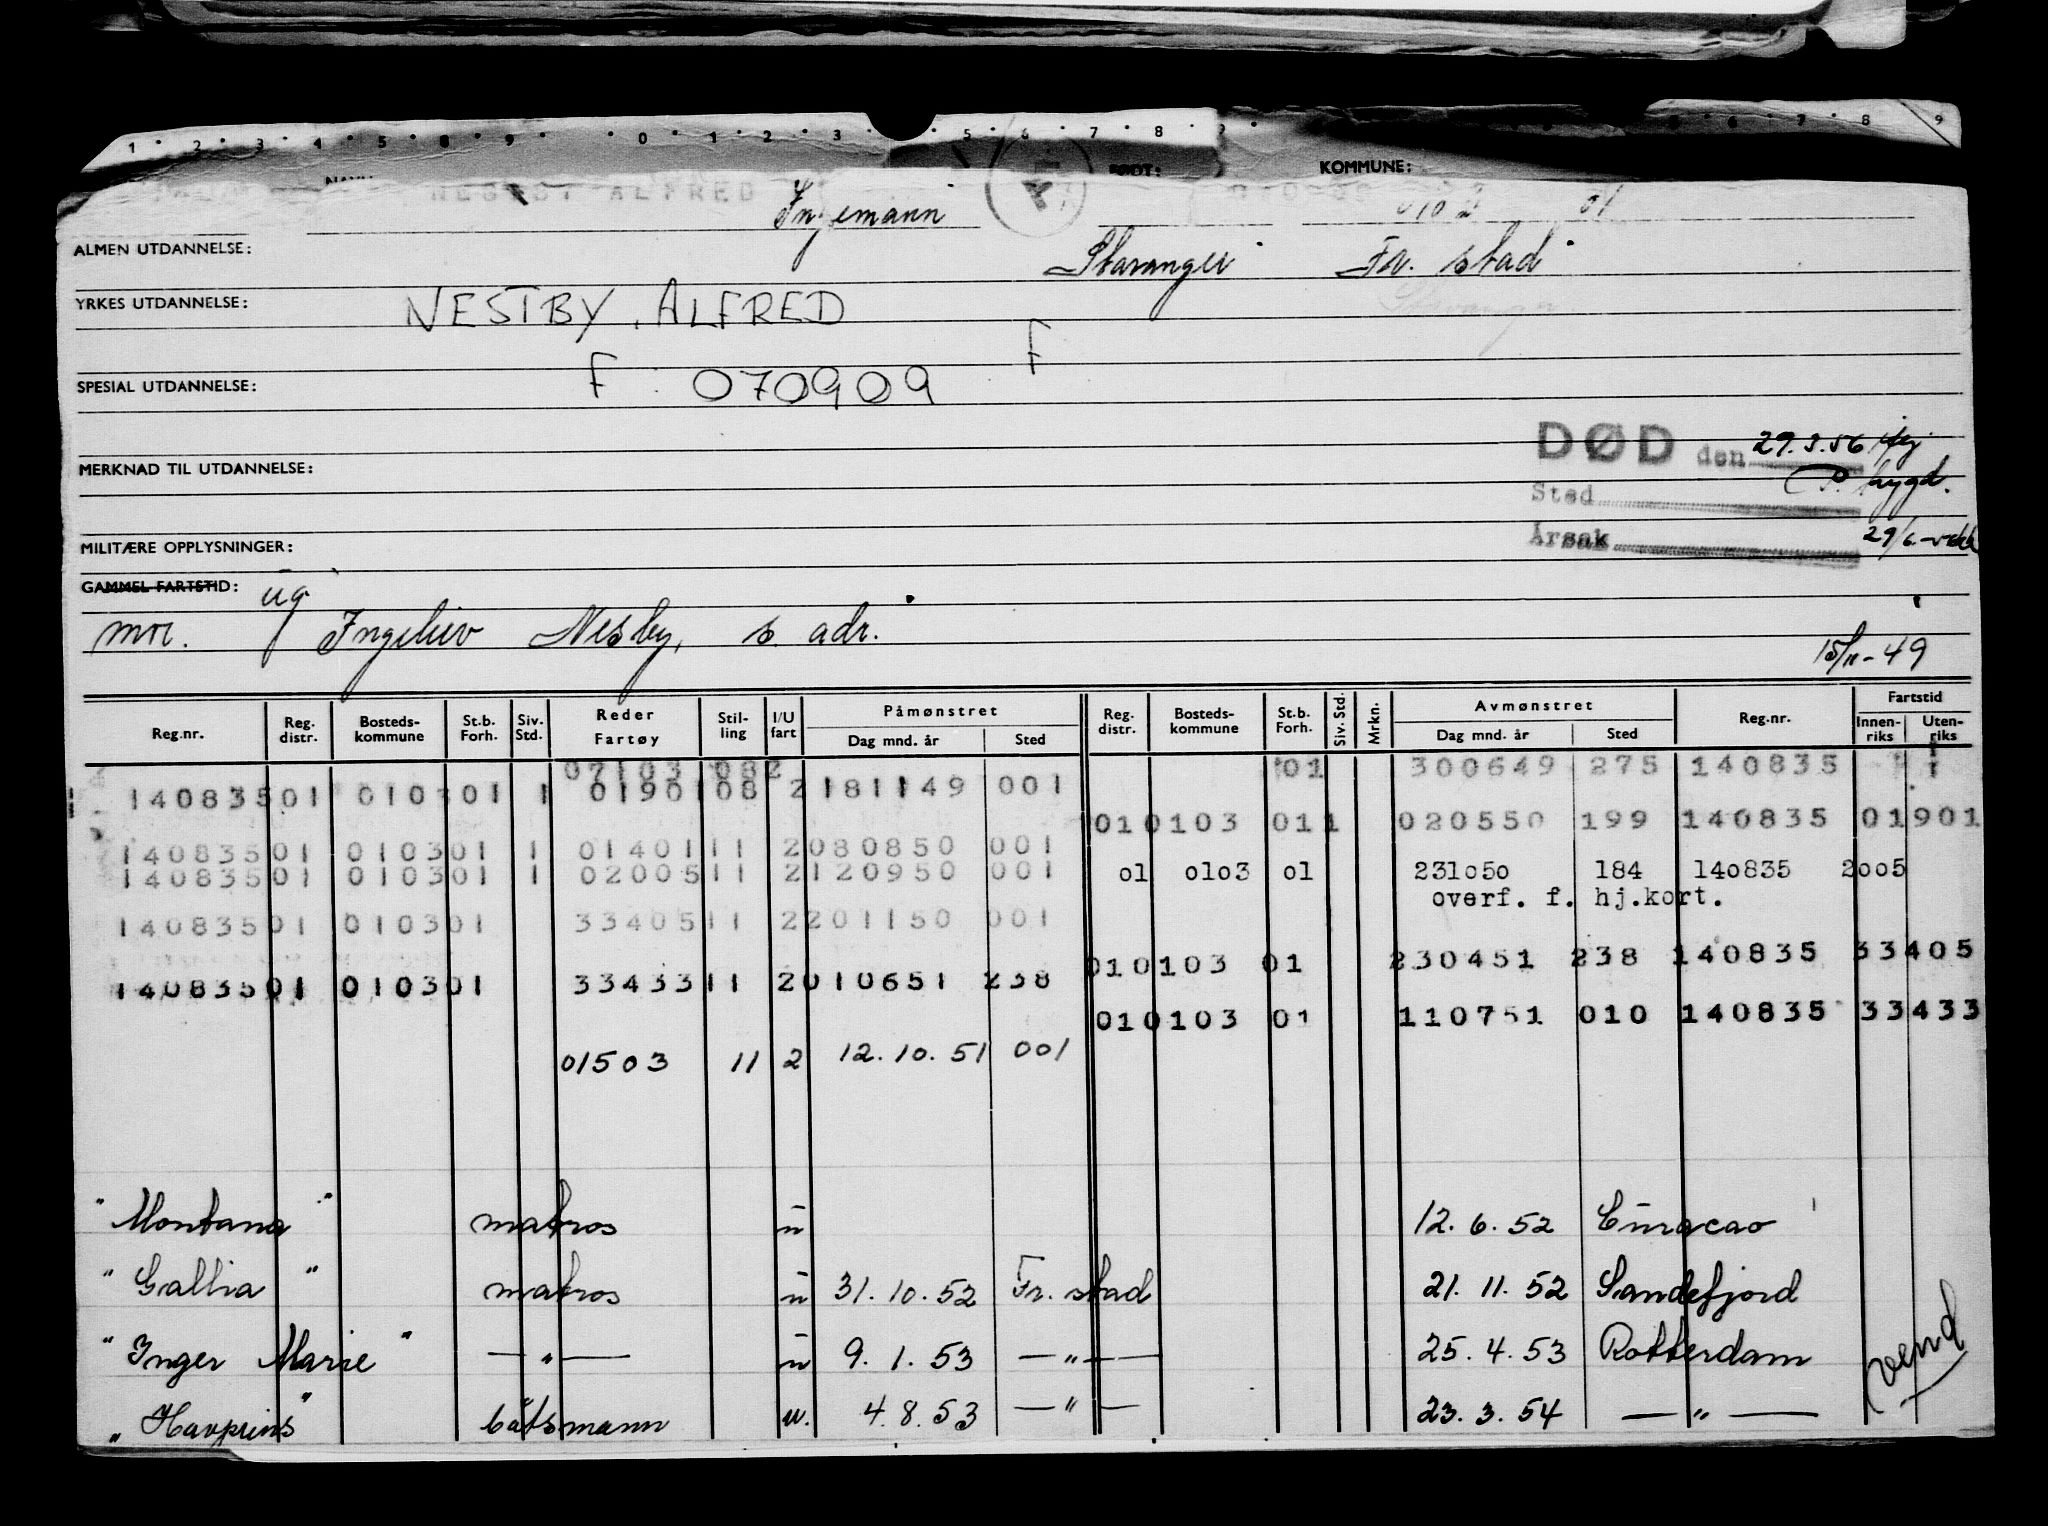 1 2 3 4 5 8 9 0 1 2 3 5 6 7 8 9 5 6 7 8 9
KOMMUNE:
ALFRED Ingemann 01
ALMEN UTDANNELSE: Stavanger Fr. stad
YRKES UTDANNELSE: NESTBY, ALFRED
F
SPESIAL UTDANNELSE: F 070909
DØD den 29.3.56
MERKNAD TIL UTDANNELSE: bygd.
Sted
Årsak 29/6
MILITÆRE OPPLYSNINGER:
GAMMEL FARTSTID: ug
mor. Ingeliev Nesby, s. adr. 15/11-49
Reg.nr. Reg. distr. Bosteds- kommune St.b. Forh. Siv. Std. Reder Fartøy Stil- ling I/U fart Påmønstret Dag mnd. år Sted Reg. distr. Bosteds- kommune St.b. Forh. Siv. Std. Mrkn. Avmønstret Dag mnd. år Sted Reg.nr. Fartstid Innen- riks Uten- riks
07103 082 01 300649 275 140835
140835 01 0103 01 1 01901 08 2 181149 001
01 0103 01 1 020550 199 140835 01901
140835 01 0103 01 1 01401 11 2 080850 001
140835 01 0103 01 1 02005 11 2 120950 001 01 0103 01 231050 184 140835 2005
overf. f. hj.kort.
140835 01 0103 01 33405 11 2 201150 001
01 0103 01 230451 238 140835 33405
140835 01 0103 01 33433 11 2 010651 238
01 0103 01 110751 010 140835 33433
01503 11 2 12.10.51 001
"Montana" matros u 12.6.52 Curacao
"Gallia" matros u 31.10.52 Fr. stad 21.11.52 Sandefjord
"Inger Marie" —"— u 9.1.53 —"— 25.4.53 Rotterdam
"Havprins" båtsmann u. 4.8.53 —"— 23.3.54 —"—
vend